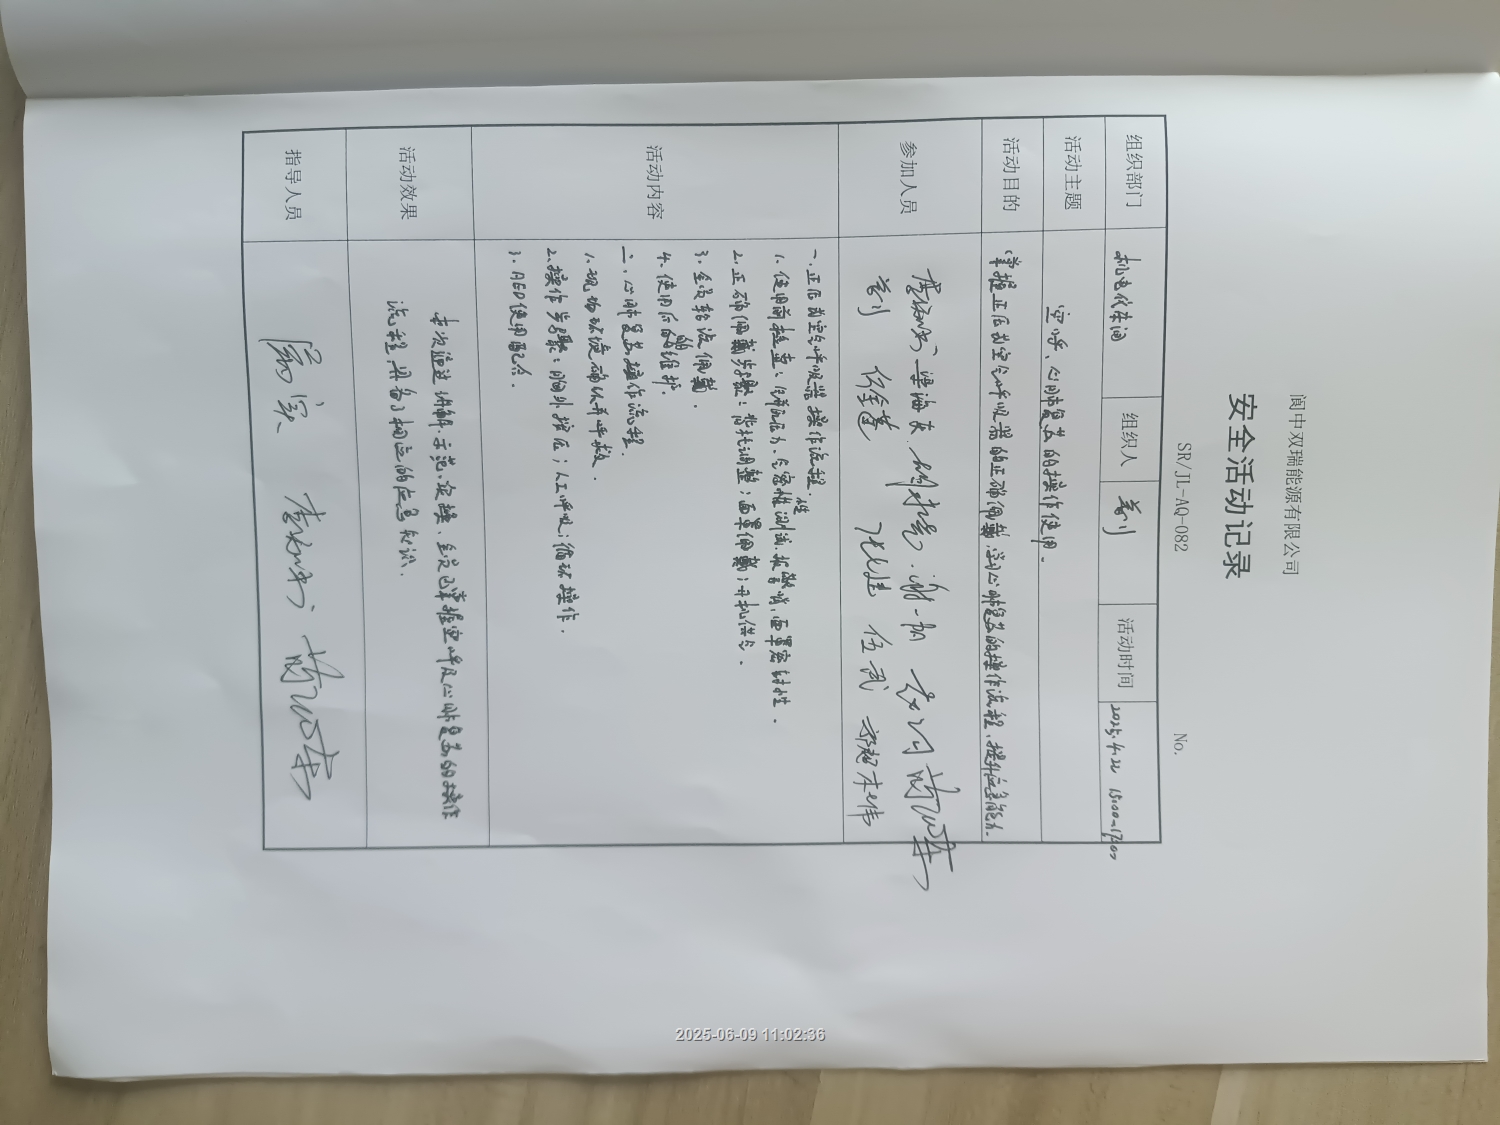 阆中双瑞能源有限公司
安全活动记录
SR/JL-AQ-082 No.
组织部门 机电仪车间 组织人 活动时间 2025.4.22 15:00-17:00
活动主题 空呼、心肺复苏的操作使用.
活动目的 掌握正压式空气呼吸器的正确佩戴,学习心肺复苏的操作流程,提升应急能力.
参加人员 伍武
活动内容
一、正压式空气呼吸器操作流程.
1. 使用前检查:压力、气密性测试、报警哨、面罩密封性.
2. 正确佩戴步骤:背托调整;面罩佩戴;开机供气.
3. 全员轮流佩戴.
4. 使用后的维护.
二、心肺复苏操作流程.
1. 现场环境确认并呼救.
2. 操作步骤:胸外按压;人工呼吸;循环操作.
3. AED使用配合.
活动效果 本次通过讲解、示范、实操,全员已掌握空呼及心肺复苏的操作
流程,具备了相应的应急知识.
指导人员
2025-06-09 11:02:36